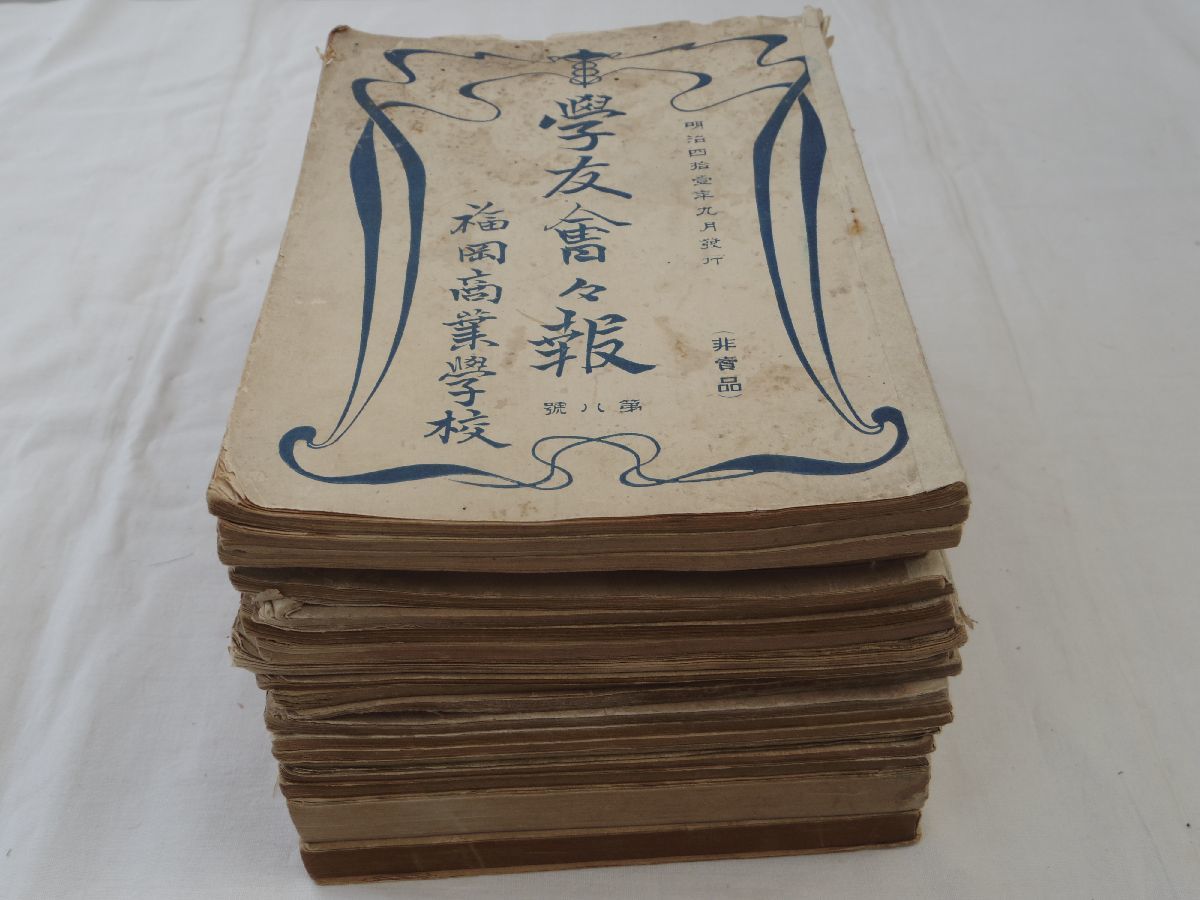 明治四拾壹年九月發行
(非賣品)
學友會々報
第八號
福岡商業學校